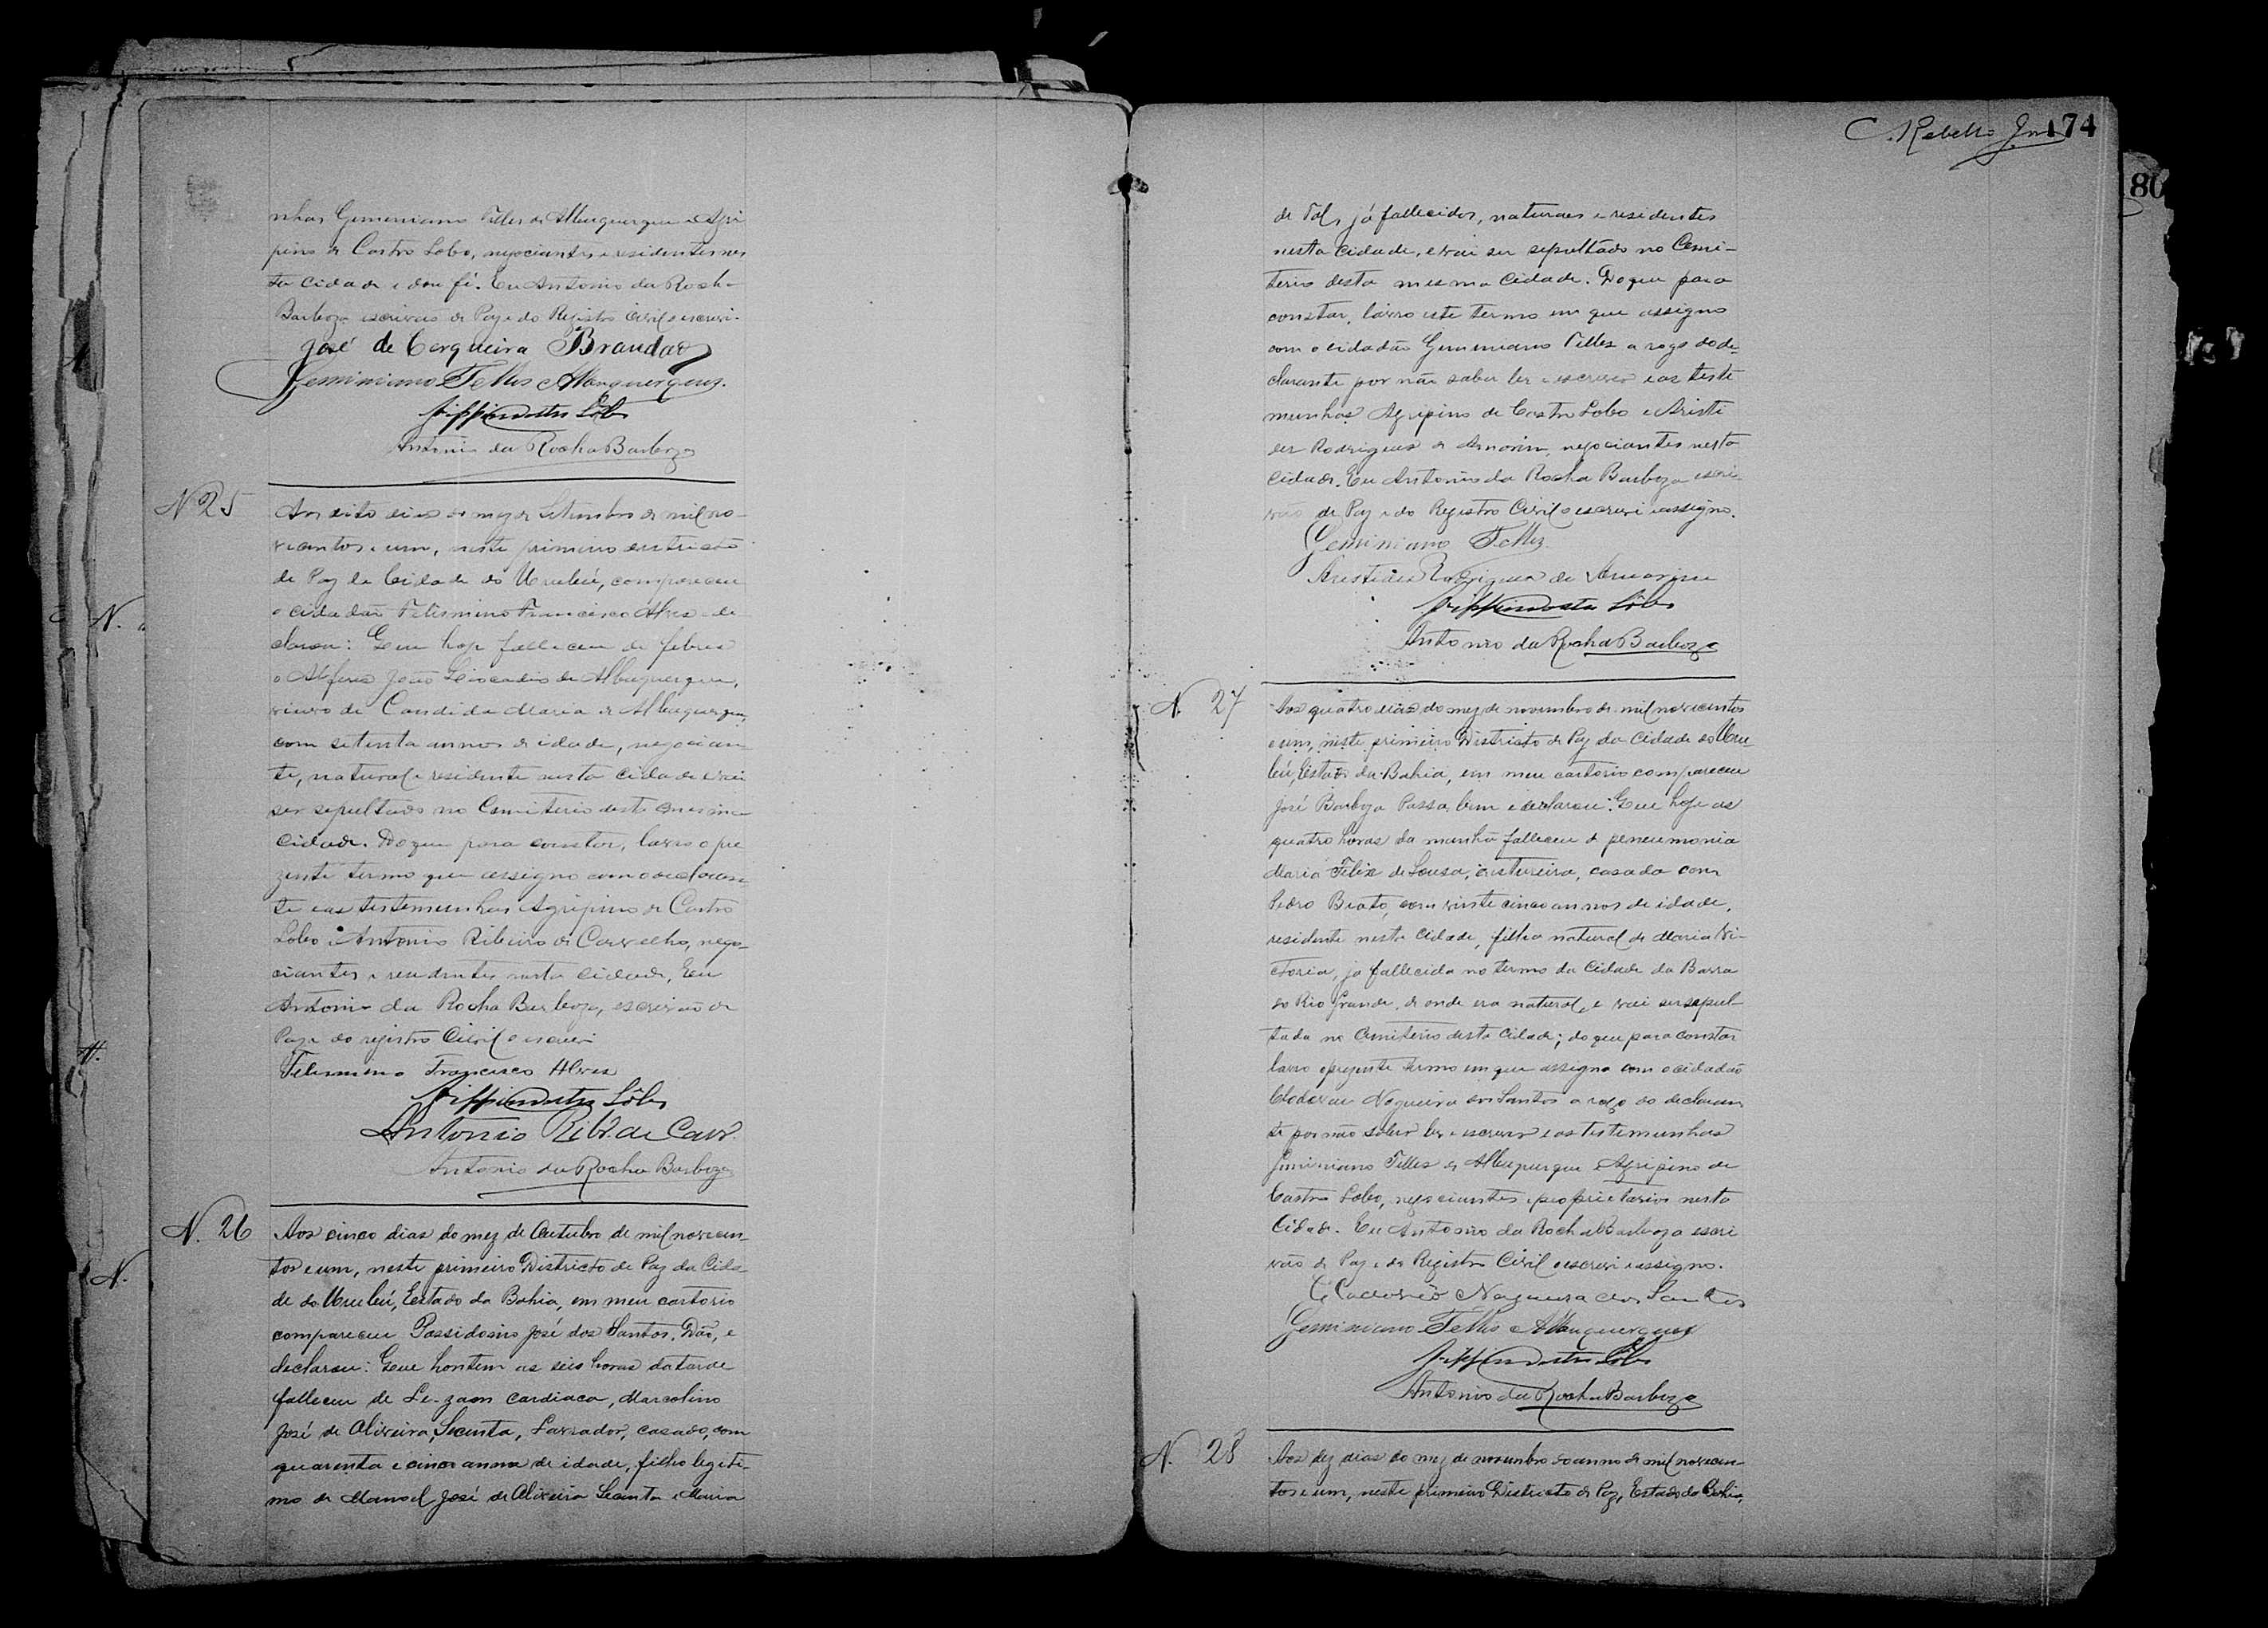 C. Rebello Jnr 174
80
nhas Geminiano Telles de Albuquerque e Agri
pino de Castro Lobo, negociantes e residentes nes
ta cidade e dou fé. Eu Antonio da Rocha
Barboza escrivão de Paz e do Registro Civil o escrevi.
José de Cerqueira Brandão
Geminiano Telles Albuquerque.
Lôbo
Antonio da Rocha Barboza
N 25
Aos oito dias do mez de Setembro de mil no-
vecentos e um, neste primeiro districto
de Paz da Cidade do Urubú, compareceu
o cidadão Felismino Francisco Alves e de
clarou: Que hoje falleceu de febres
o Alferes João Leocadio de Albuquerque,
viuvo de Candida Maria de Albuquerque,
com setenta annos de idade, negocian
te, natural e residente nesta cidade e vai
ser sepultado no Cemiterio desta mesma
cidade. Do que para constar, lavro o pre
zente termo que assigno com o declaran
te e as testemunhas Agripino de Castro
Lobo e Antonio Ribeiro de Carvalho, nego-
ciantes e residentes nesta cidade, Eu
Antonio da Rocha Barboza, escrivão de
Paz e do registro Civil o escrevi
Felismino Francisco Alves
Lôbo
Antonio Ribr. de Carv.
Antonio da Rocha Barboza
N. 26
Aos cinco dias do mez de Outubro de mil novecen
tos e um, neste primeiro Districto de Paz da Cida
de do Urubú, Estado da Bahia, em meu cartorio
compareceu Possidonio José dos Santos, e
declarou: Que hontem as seis horas da tarde
falleceu de Lezam cardiaca, Marcolino
José de Oliveira, Lavrador, casado, com
quarenta e cinco annos de idade, filho legiti-
mo de Manoel José de Oliveira e Maria
de Tal, já fallecidos, naturaes e residentes
nesta cidade, e vai ser sepultado no Cemi-
terio desta mesma cidade. Do que para
constar, lavro este termo em que assigno
com o cidadão Geminiano Telles a rogo do de-
clarante por não saber ler e escrever e as teste
munhas Agripino de Castro Lobo e Aristi
des Rodrigues de Amorim, negociantes nesta
cidade. Eu Antonio da Rocha Barboza escri-
vão de Paz e do Registro Civil o escrevi e assigno.
Geminiano Telles
Aristides Rodrigues de Amorim
Lôbo
Antonio da Rocha Barboza
N. 27
Aos quatro dias do mez de novembro de mil novecentos
e um, neste primeiro Districto de Paz da Cidade do Uru
bú, Estado da Bahia, em meu cartorio compareceu
José Barboza Passa bem e declarou: Que hoje as
quatro horas da manhã falleceu de peneumonia
Maria Felix de Sousa, custureira, casada com
Pedro Beato, com vinte cinco annos de idade,
residente nesta cidade, filha natural de Maria Vi-
ctoria, já fallecida no termo da Cidade da Barra
do Rio Grande, de onde era natural, e vai ser sepul-
tada no Cemiterio desta Cidade; do que para constar
lavro o prezente termo em que assigno com o cidadão
Clodoveu Nogueira dos Santos a rogo do declaran
te por não saber ler e escrever e as testemunhas
Geminiano Telles de Albuquerque e Agripino de
Castro Lobo, negociantes e proprietarios nesta
Cidade. Eu Antonio da Rocha Barboza escri
vão de Paz e do Registro Civil o escrevi e assigno.
Nogueira dos Santos
Geminiano Telles Albuquerque
Lôbo
Antonio da Rocha Barboza
N. 28
Aos dez dias do mez de novembro do anno de mil novecen-
tos e um, neste primeiro Districto de Paz, Estado da Bahia,